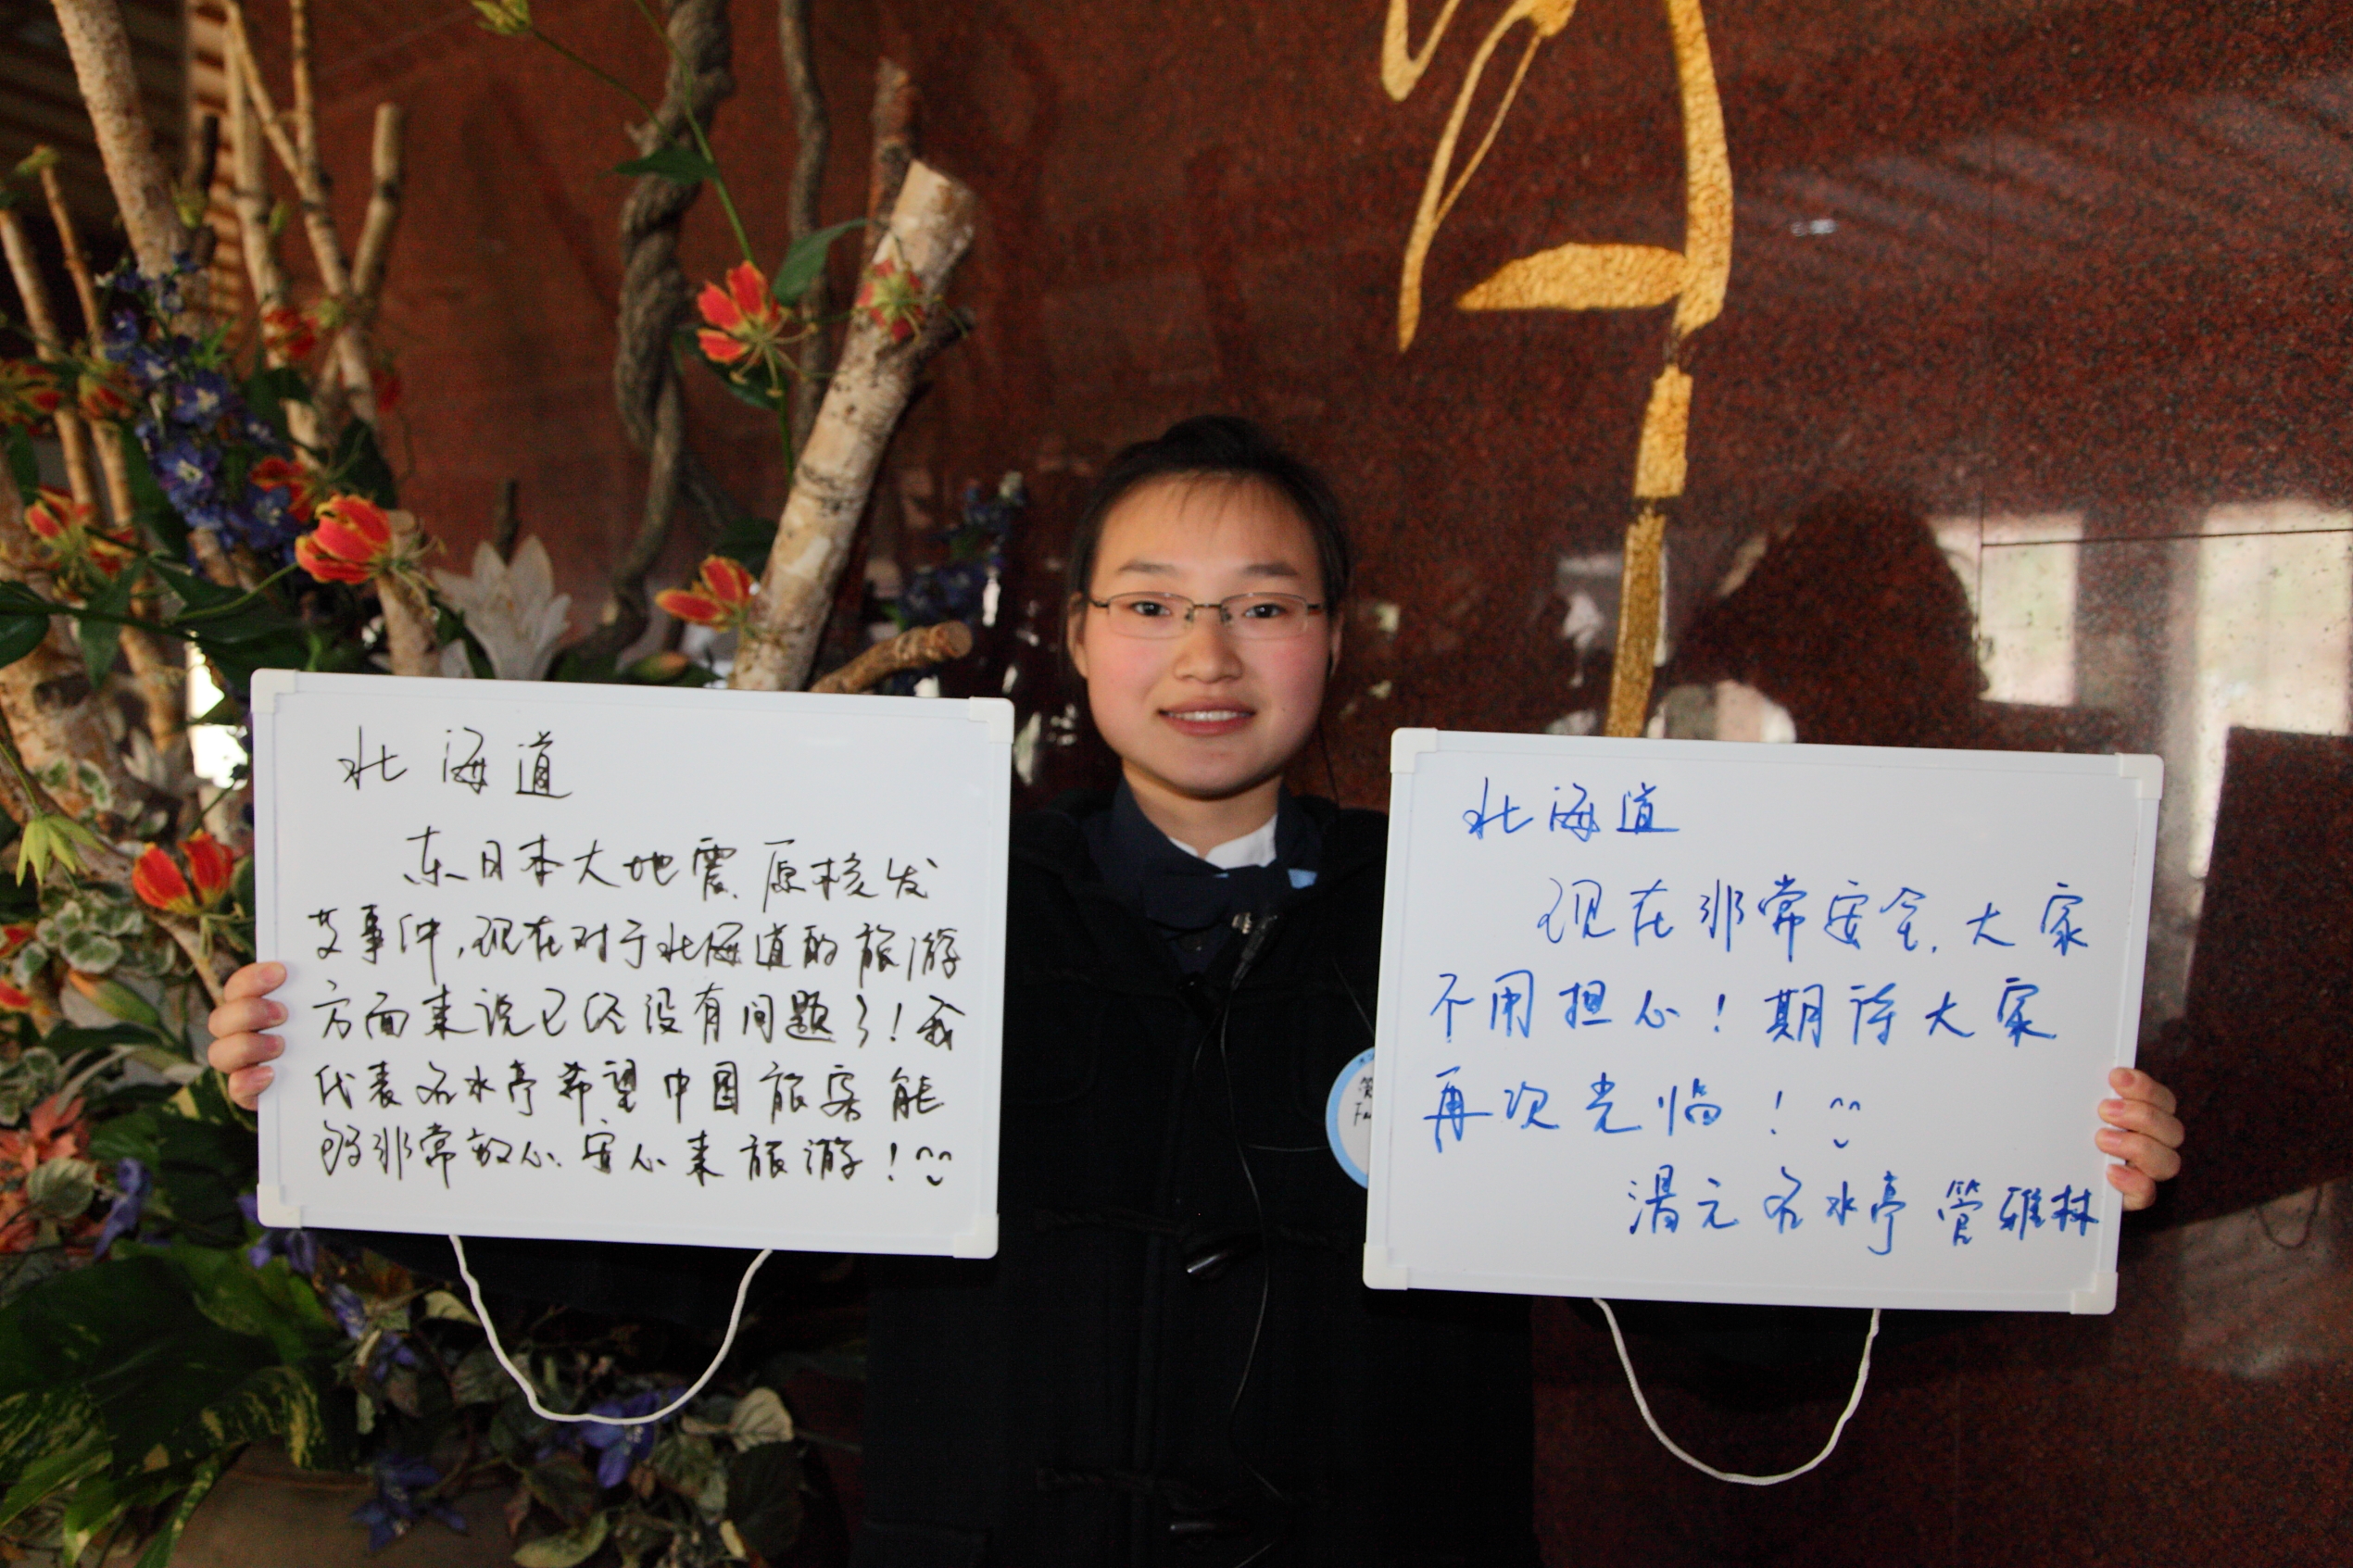 北海道
东日本大地震、原核发
艾事件,现在对于北海道的旅游
方面来说已经没有问题了!我
代表名水亭希望中国旅客能
够非常放心、安心来旅游!
北海道
现在非常安全,大家
不用担心!期待大家
再次光临!
湯元名水亭 管雅林